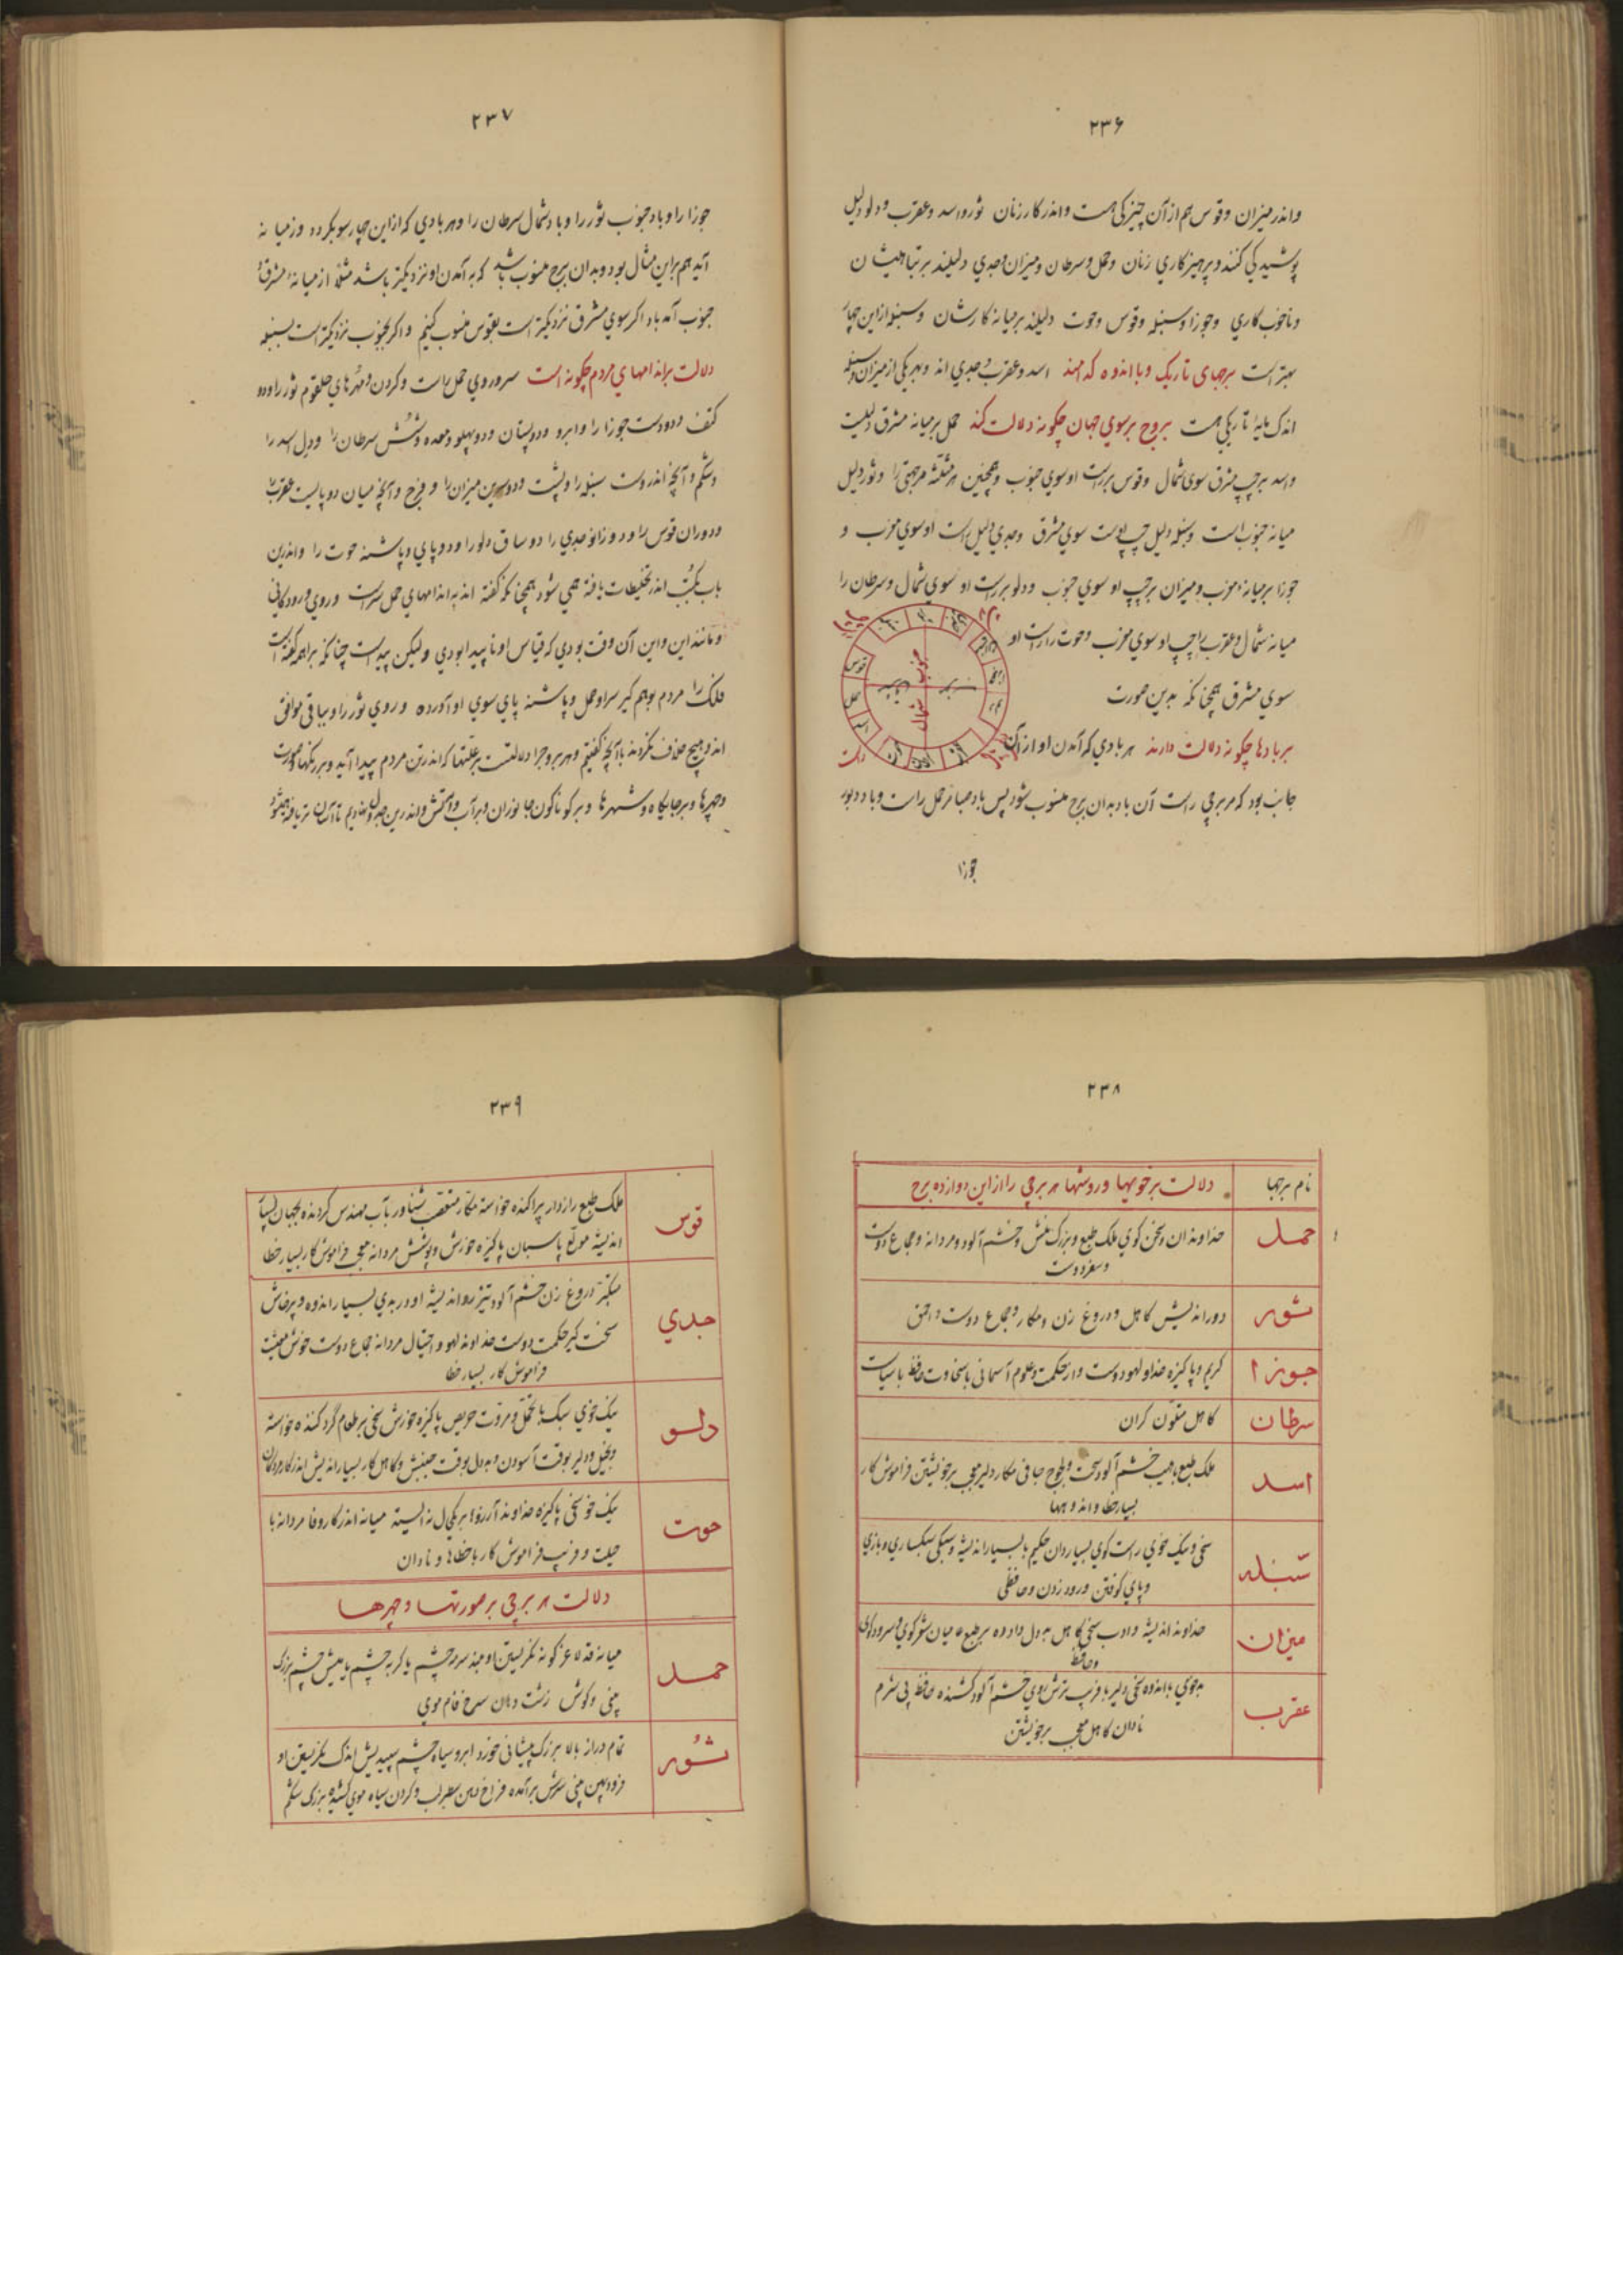 ۲۳۶
واندر میزان وقوس هم از آن چیزکی هست واندر کار زنان ثور واسد وعقرب ودلو دلیل
پوشیدکی کنند وپرهیزکاري زنان وحمل وسرطان ومیزان وجدي دلیلند بر تباهیشان
وناخوب کاري وجوزا وسنبله وقوس وحوت دلیلند بر میانه کارشان وسنبله ازین چهار
بهتر است برجهای تاریک وبا اندوه که امند اسد وعقرب وجدي اند وبهر یکی از میزان وسنبله
اندک مایهٔ تاریکی هست بروج بر سوي جهان چکونه دلالت کند حمل بر میانه مشرق دلیلست
واسد بر چپ مشرق سوی شمال وقوس بر راست او سوي جنوب وهمچنین هر مثلثه مرجهتی را وثور دلیل
میانه جنوب است وسنبله دلیل چپ اوست سوي مشرق وجدي دلیل راست او سوي مغرب و
جوزا بر میانهٔ مغرب ومیزان بر چپ او سوي جنوب ودلو بر راست او سوي شمال وسرطان را
میانه شمال وعقرب را چپ او سوي مغرب وحوت را راست او
سوي مشرق همچنانکه بدین صورت
جنوب
شمال
قوس
حمل
اسد
بر بادها چکونه دلالت دارند هر بادي که آمدن او از آن
جانب بود که مر برجی راست آن باد بدان برج منسوب شود پس باد صبا مر حمل راست وباد دبور
جوزا
۲۳۷
جوزا را وباد جنوب ثور را وباد شمال سرطان را وهر بادي که از این چهار سو بکردد وز میانه
آید هم بر این مثال بود وبدان برج منسوب باشد که به آمدن او نزدیکتر باشد مثلا از میانهٔ مشرق و
جنوب آمد باد اکر سوي مشرق نزدیکتر است بقوس منسوب کنیم واکر بجنوب نزدیکتر است بسنبله
دلالت بر اندامهاي مردم چکونه است سر وروي حمل راست وکردن ومهرهاي حلقوم ثور را ودو
کتف ودو دست جوزا را وابرو ودو پستان ودو پهلو ومعده وشش سرطان را ودل اسد را
وشکم وآنچه اندروست سنبله را وپشت ودو سرین میزان را وفرج وآنچه میان دو پایست عقرب را
ودو ران قوس را ودو زانو جدي را دو ساق دلو را ودو پاي وپاشنه حوت را واندرین
باب بکتب اندر تخلیطات یافته همي شود همچنانکه کفته اند به اندامهاي حمل سر است وروي ورودکاني
ومانند این واین آن وقت بودي که قیاس او ناپیدا بودي ولیکن پیداست چنانکه براهمه کفته است
فلک را مردم بوهم کیر سر او حمل وپاشنه پاي سوي او آورده وروي ثور را وباقی موافق
اند وهیچ خلاف نکردند با آنچه کفتیم وهر برجرا دلالتست بر علتها که اندر تن مردم پیدا آید وبر رنکها وصورت
وچهرها وبر جایکاه وشهرها وبر کوناکون جانوران وبر آب وآتش واندرین جدول نهادیم تا آسان تر یافته شود
۲۳۸
نام برجها
دلالت بر خویها وروشها هر برجی را از این دوازده برج
حمل
خداوندان وسخن کوي ملک طبع وبزرک منش وخشم آلود ومردانه وجماع دوست
وسفر دوست
ثور
دور اندیش کاهل ودروغ زن ومکار وجماع دوست واحمق
جوزا
کریم وپاکیزه خداو لهو دوست دار حکمت وعلوم آسمانی با سخاوت حافظ با سیاست
سرطان
کاهل متلون کران
اسد
ملک طبع با هیبت خشم آلود سخت ولجوج جافی مکار دلیر معجب بر خویشتن فراموش کار
بسیار خطا واندوهها
سنبله
سخی ونیک خوي راست کوي بسیار دان حکیم با بسیار اندیشه وسبکی سبکساري وبازي
وپاي کوفتن ورود زدن وحافظی
میزان
خداوند اندیشه وادب سخی کاهل بد دل داده بر طبع عامیان شعر کوي وسرود کوي
وحافظ
عقرب
بد خوي با اندوه سخی دلیر با فریب ترش روي خشم آلود کشنده حافظ بی شرم
نادان کاهل معجب بر خویشتن
۲۳۹
قوس
ملک طبع راز دار پراکنده خواسته مکار متعصب شناور بآب مهندس کردنده بجهان بسیار
اندیشه مولع پاسبان پاکیزه خورش وپوشش مردانه معجب فراموش کار بسیار خطا
جدي
متکبر دروغ زن خشم آلود تیز رو اندیشه او در بدي بسیار اندوه وپرخاش
سخت کیر حکمت دوست خداوند لهو واحتیال مردانه جماع دوست خوش معیشت
فراموش کار بسیار خطا
دلو
نیک خوي سبک با تحمل ومروت حریص پاکیزه خورش سخی بر طعام گرد کننده خواسته
وبخیل ودلیر بوقت آسودن وبد دل بوقت جنبش وکاهل کار بسیار اندیش اندر کار مردکان
حوت
نیک خو سخی پاکیزه خداوند آرزوها بر یکی حال نه ایستد میانه اندر کار وفا مردانه با
حیلت وفریب فراموش کار با خطا ونادان
دلالت هر برجی بر صورتها وچهرها
حمل
میانه قد لاغر کونه نکریستن او بلند سرمه چشم یا کربه چشم یا میش چشم بزرک
بینی وکوش زشت دهان سرخ فام موي
ثور
تمام دراز بالا بزرک پیشانی خورد ابرو سیاه چشم سپیدیش اندک نکریستن او
فرود پهن بینی سرش برآمده فراخ دهن سطبر لب وکردن سیاه موي کشیده بزرک شکم